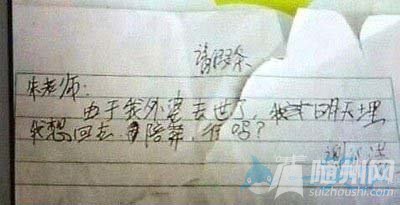 请假条
朱老师:
由于我外婆去世了,我 明天埋
我想回去 陪葬,行吗?
随州网
suizhoushi.com